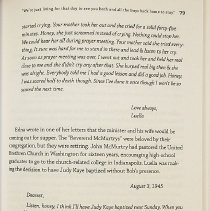 "We're just living for that day to see you both and all the boys back home to stay" 79
started crying. Your mother took her out and she cried for a solid forty-five
minutes. Honey, she just screamed instead of crying. Nothing could stop her.
We could hear her all during prayer meeting. Your mother said she tried every-
thing. It sure was hard for me to stand in there and lead & listen to her cry.
As soon as prayer meeting was over, I went out and took her and held her real
close to me and she didn't cry after that. She hugged real big then & she
was alright. Everybody told me I had a good lesson and did a good job. Honey,
I was scared half to death though. Since I've done it once though I won't be so
scared the next time.
Love always,
Luella
Edna wrote in one of her letters that the minister and his wife would be
coming out for supper. The "Reverend McMurtrys" were beloved by their
congregation, but they were retiring. John McMurtry had pastored the United
Brethren Church in Washington for sixteen years, encouraging high school
graduates to go to the church-related college in Indianapolis. Luella was mak-
ing the decision to have Judy Kaye baptized without Bob's presence.
August 3, 1945
Dearest,
Listen, honey, I think I'll have Judy Kaye baptized next Sunday. When you